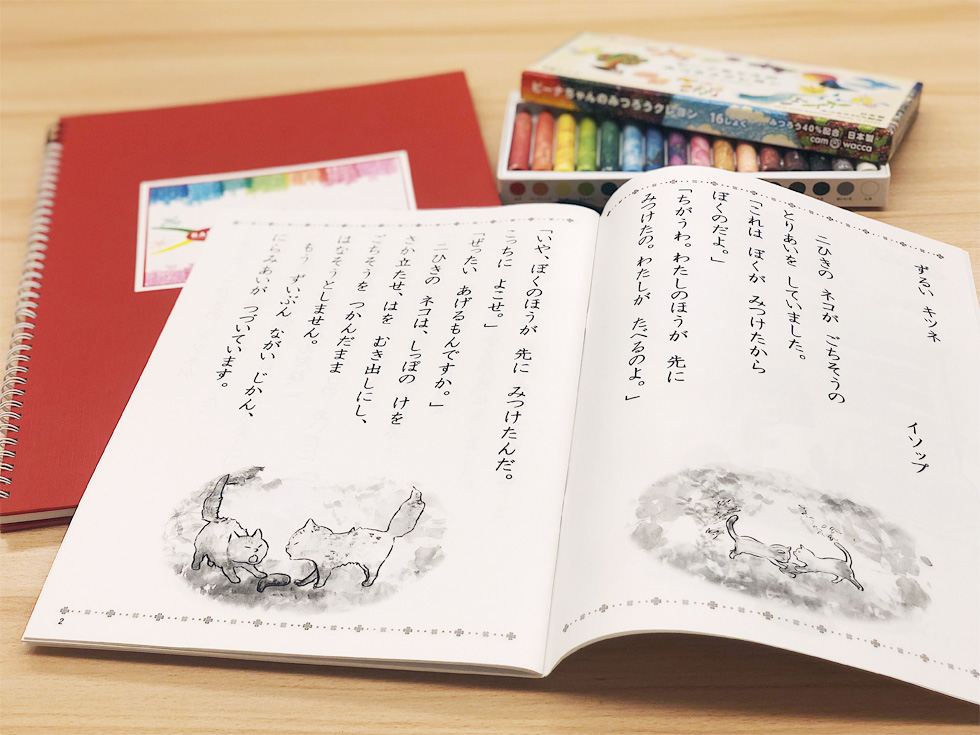 ピーナちゃんのみつろうクレヨン 16しょく みつろう40%配合 日本製
cam wacca
ずるい キツネ
イソップ
二ひきの ネコが ごちそうの
とりあいを していました。
「これは ぼくが みつけたから
ぼくのだよ。」
「ちがうわ。わたしのほうが 先に
みつけたの。わたしが たべるのよ。」
「いや、ぼくのほうが 先に みつけたんだ。
こっちに よこせ。」
「ぜったい あげるもんですか。」
二ひきの ネコは、しっぽの けを
さか立たせ、はを むき出しにし、
ごちそうを つかんだまま
はなそうとしません。
もう ずいぶん ながい じかん、
にらみあいが つづいています。
2